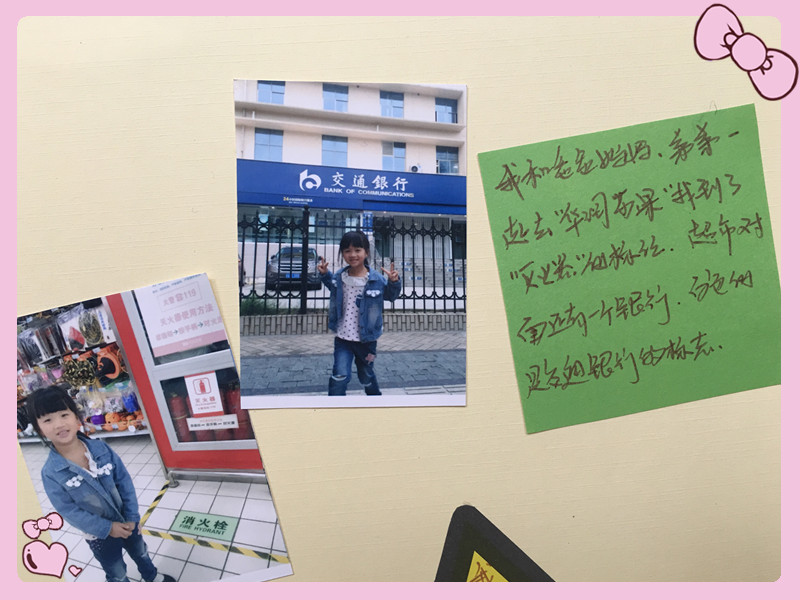 交通銀行
BANK OF COMMUNICATIONS
火警119
灭火器使用方法
灭火器
消火栓
FIRE HYDRANT
我和爸爸妈妈、弟弟一
起去"华润万家"找到了
"灭火器"的标志.
对
面还有一个银行.
是交通银行的标志.